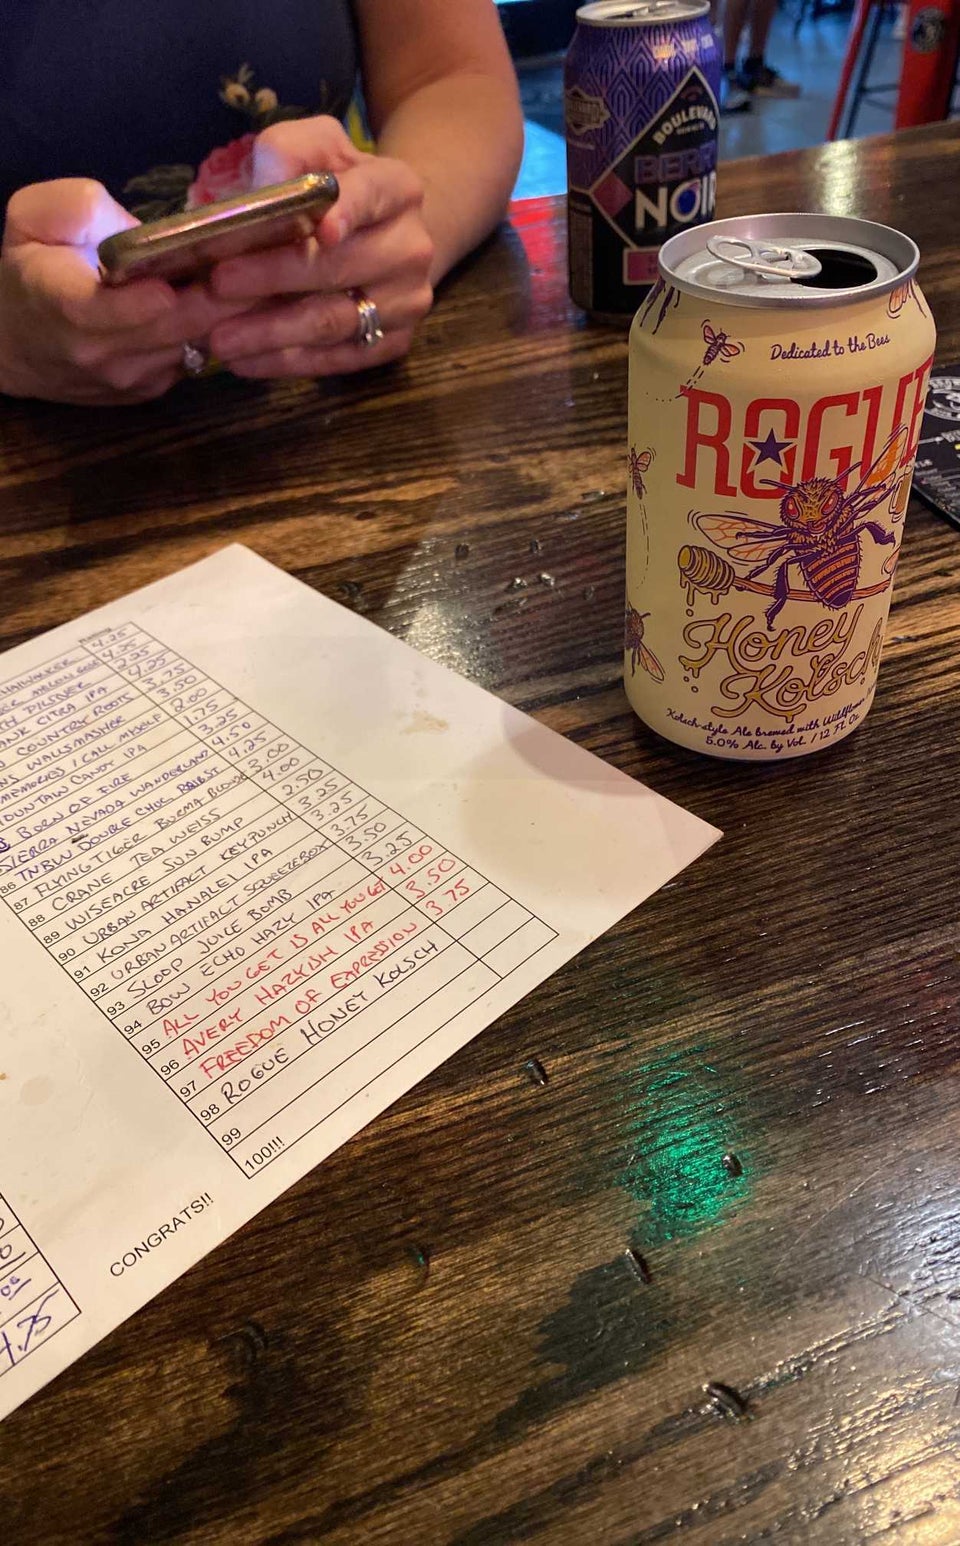 BOULEVARD
NOIR
Dedicated to the Bees
ROGUE
Honey
Kolsch
Kolsch-style Ale brewed with Wildflower
5.0% Alc. by Vol. / 12 Fl. Oz
4.25
4.25
PILSNER 2.25
CITRA IPA 4.25
COUNTRY ROOTS 3.75
WALLSMASHER 3.50
MEMORIES / CALL MYSELF 2.00
MOUNTAIN CANDY IPA 1.75
BORN OF FIRE 3.25
SIERRA NEVADA WANDERLAND 4.50
86 TNBW DOUBLE CHOC 4.25
87 FLYING TIGER BURMA 3.00
88 CRANE TEA WEISS 4.00
89 WISEACRE SUN BUMP 2.50
90 URBAN ARTIFACT KEYPUNCH 3.25
91 KONA HANALEI IPA 3.25
92 URBAN ARTIFACT SQUEEZEBOX 3.75
93 SLOOP JUICE BOMB 3.50
94 BOW ECHO HAZY IPA 3.25
95 ALL YOU GET IS ALL YOU GET 4.00
96 AVERY HAZYISH IPA 3.50
97 FREEDOM OF EXPRESSION 3.75
98 ROGUE HONEY KOLSCH
99
100!!!
CONGRATS!!